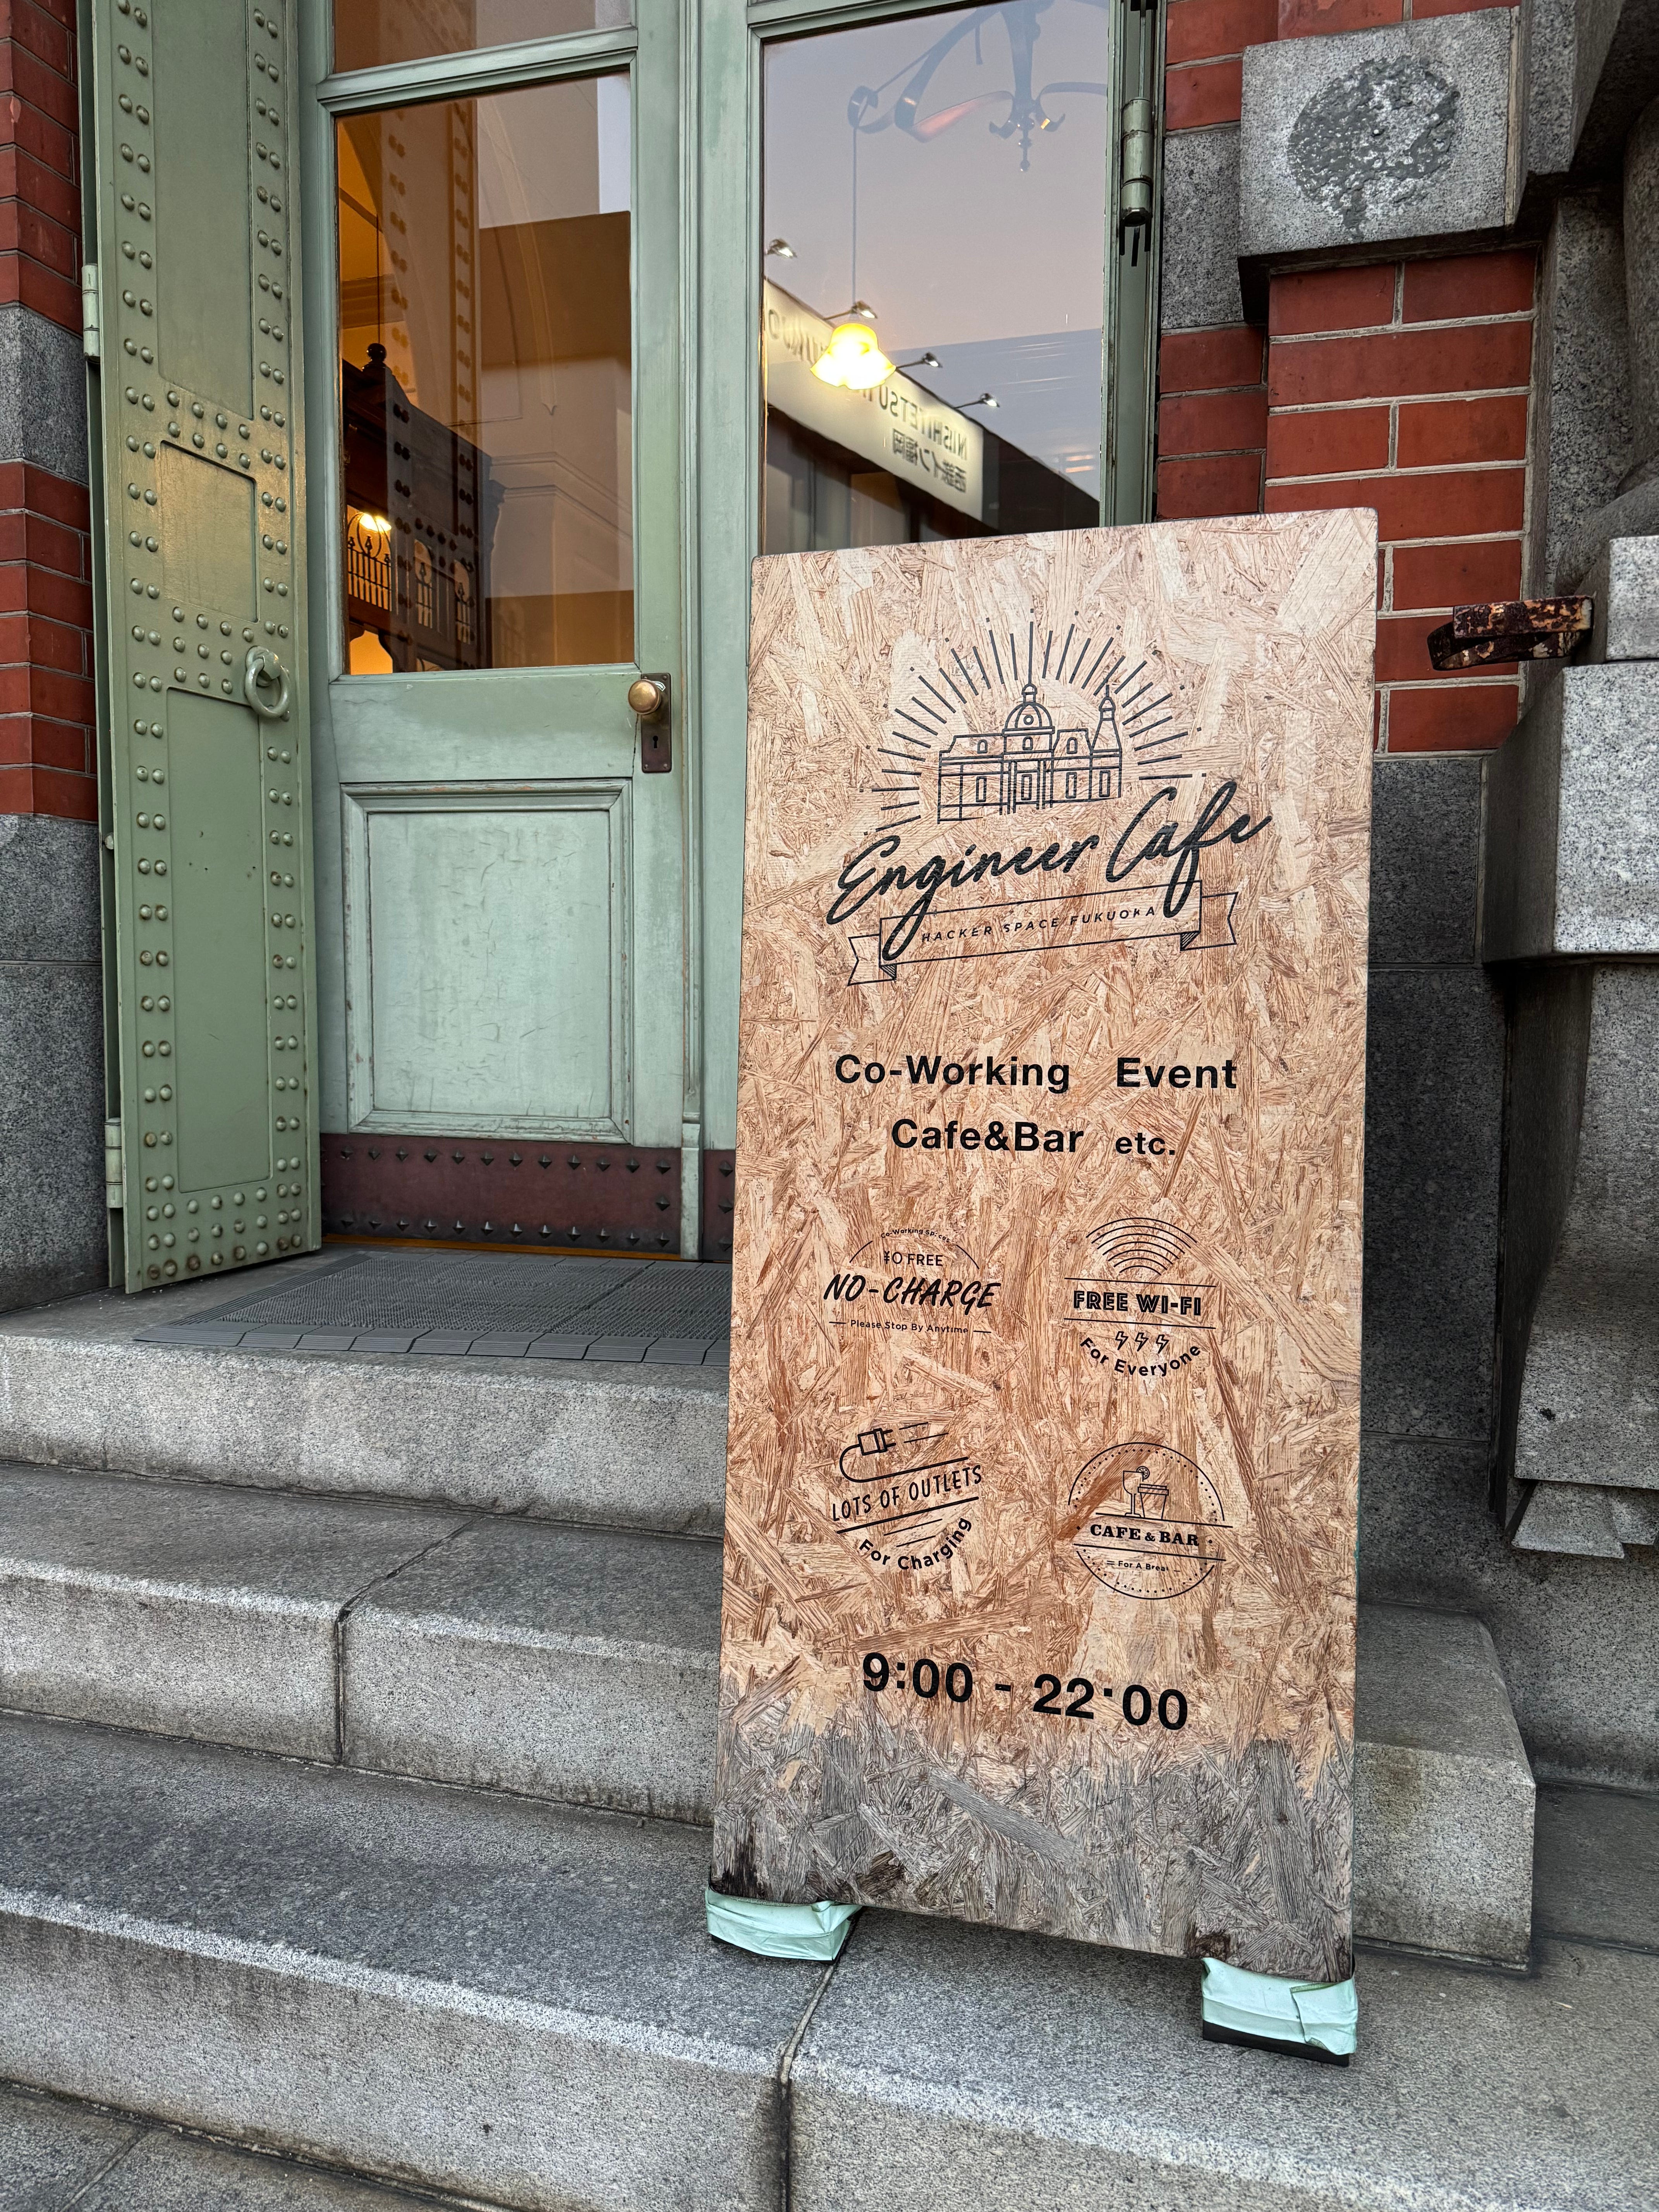 Engineer Cafe
HACKER SPACE FUKUOKA
Co-Working Event
Cafe&Bar etc.
Co-Working Spaces
¥0 FREE
NO-CHARGE
Please Stop By Anytime
FREE WI-FI
For Everyone
LOTS OF OUTLETS
For Charging
CAFE & BAR
For A Break
9:00 - 22:00
NISHITETSU
西鉄イン福岡